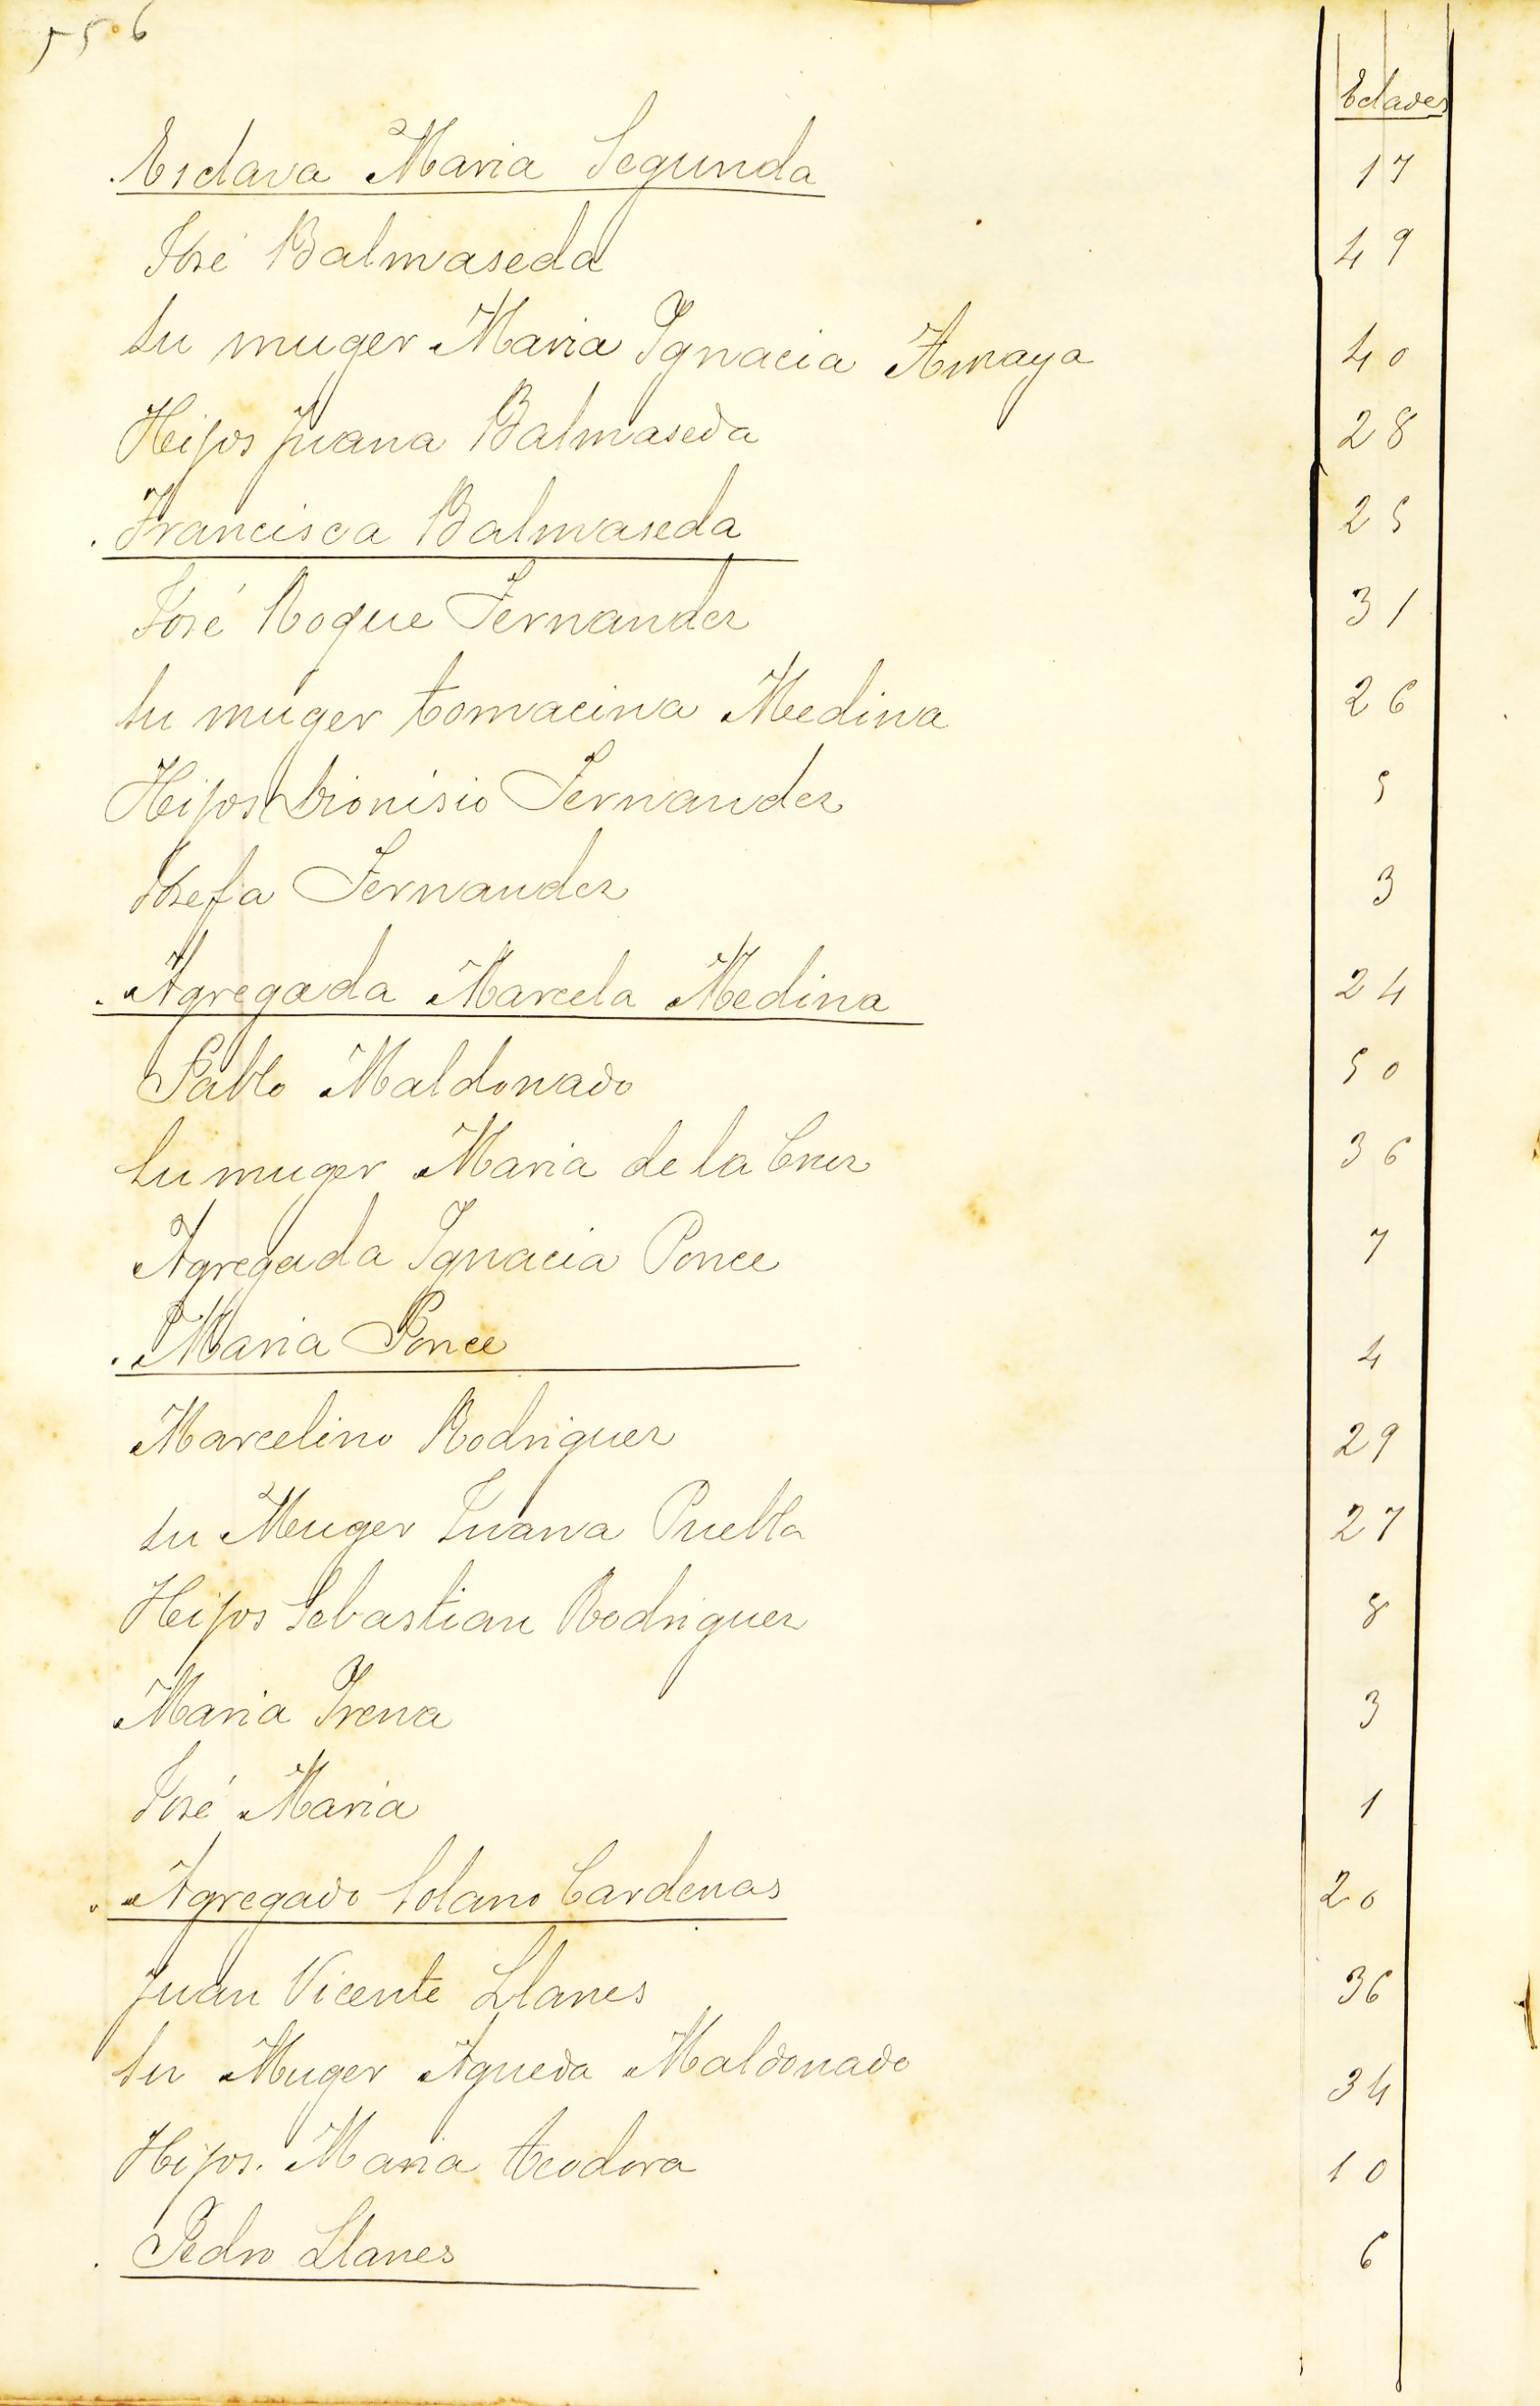 556
Edades
Esclava Maria Segunda 17
José Balmaseda 49
Su muger Maria Ygnacia Amaya 40
Hijos Juana Balmaseda 28
Francisca Balmaseda 25
José Roque Fernandez 31
Su muger tomacina Medina 26
Hijos Dionisio Fernandez 5
Josefa Fernandez 3
Agregada Marcela Medina 24
Pablo Maldonado 50
Su muger Maria de la Cruz 36
Agregada Ygnacia Ponce 7
Maria Ponce 4
Marcelino Rodriguez 29
Su Muger Juana Puebla 27
Hijos Sebastian Rodriguez 8
Maria Yrena 3
José Maria 1
Agregado Solano Cardenas 20
Juan Vicente Llanes 36
Su Muger Agueda Maldonado 34
Hijos. Maria teodora 10
Pedro Llanes 6